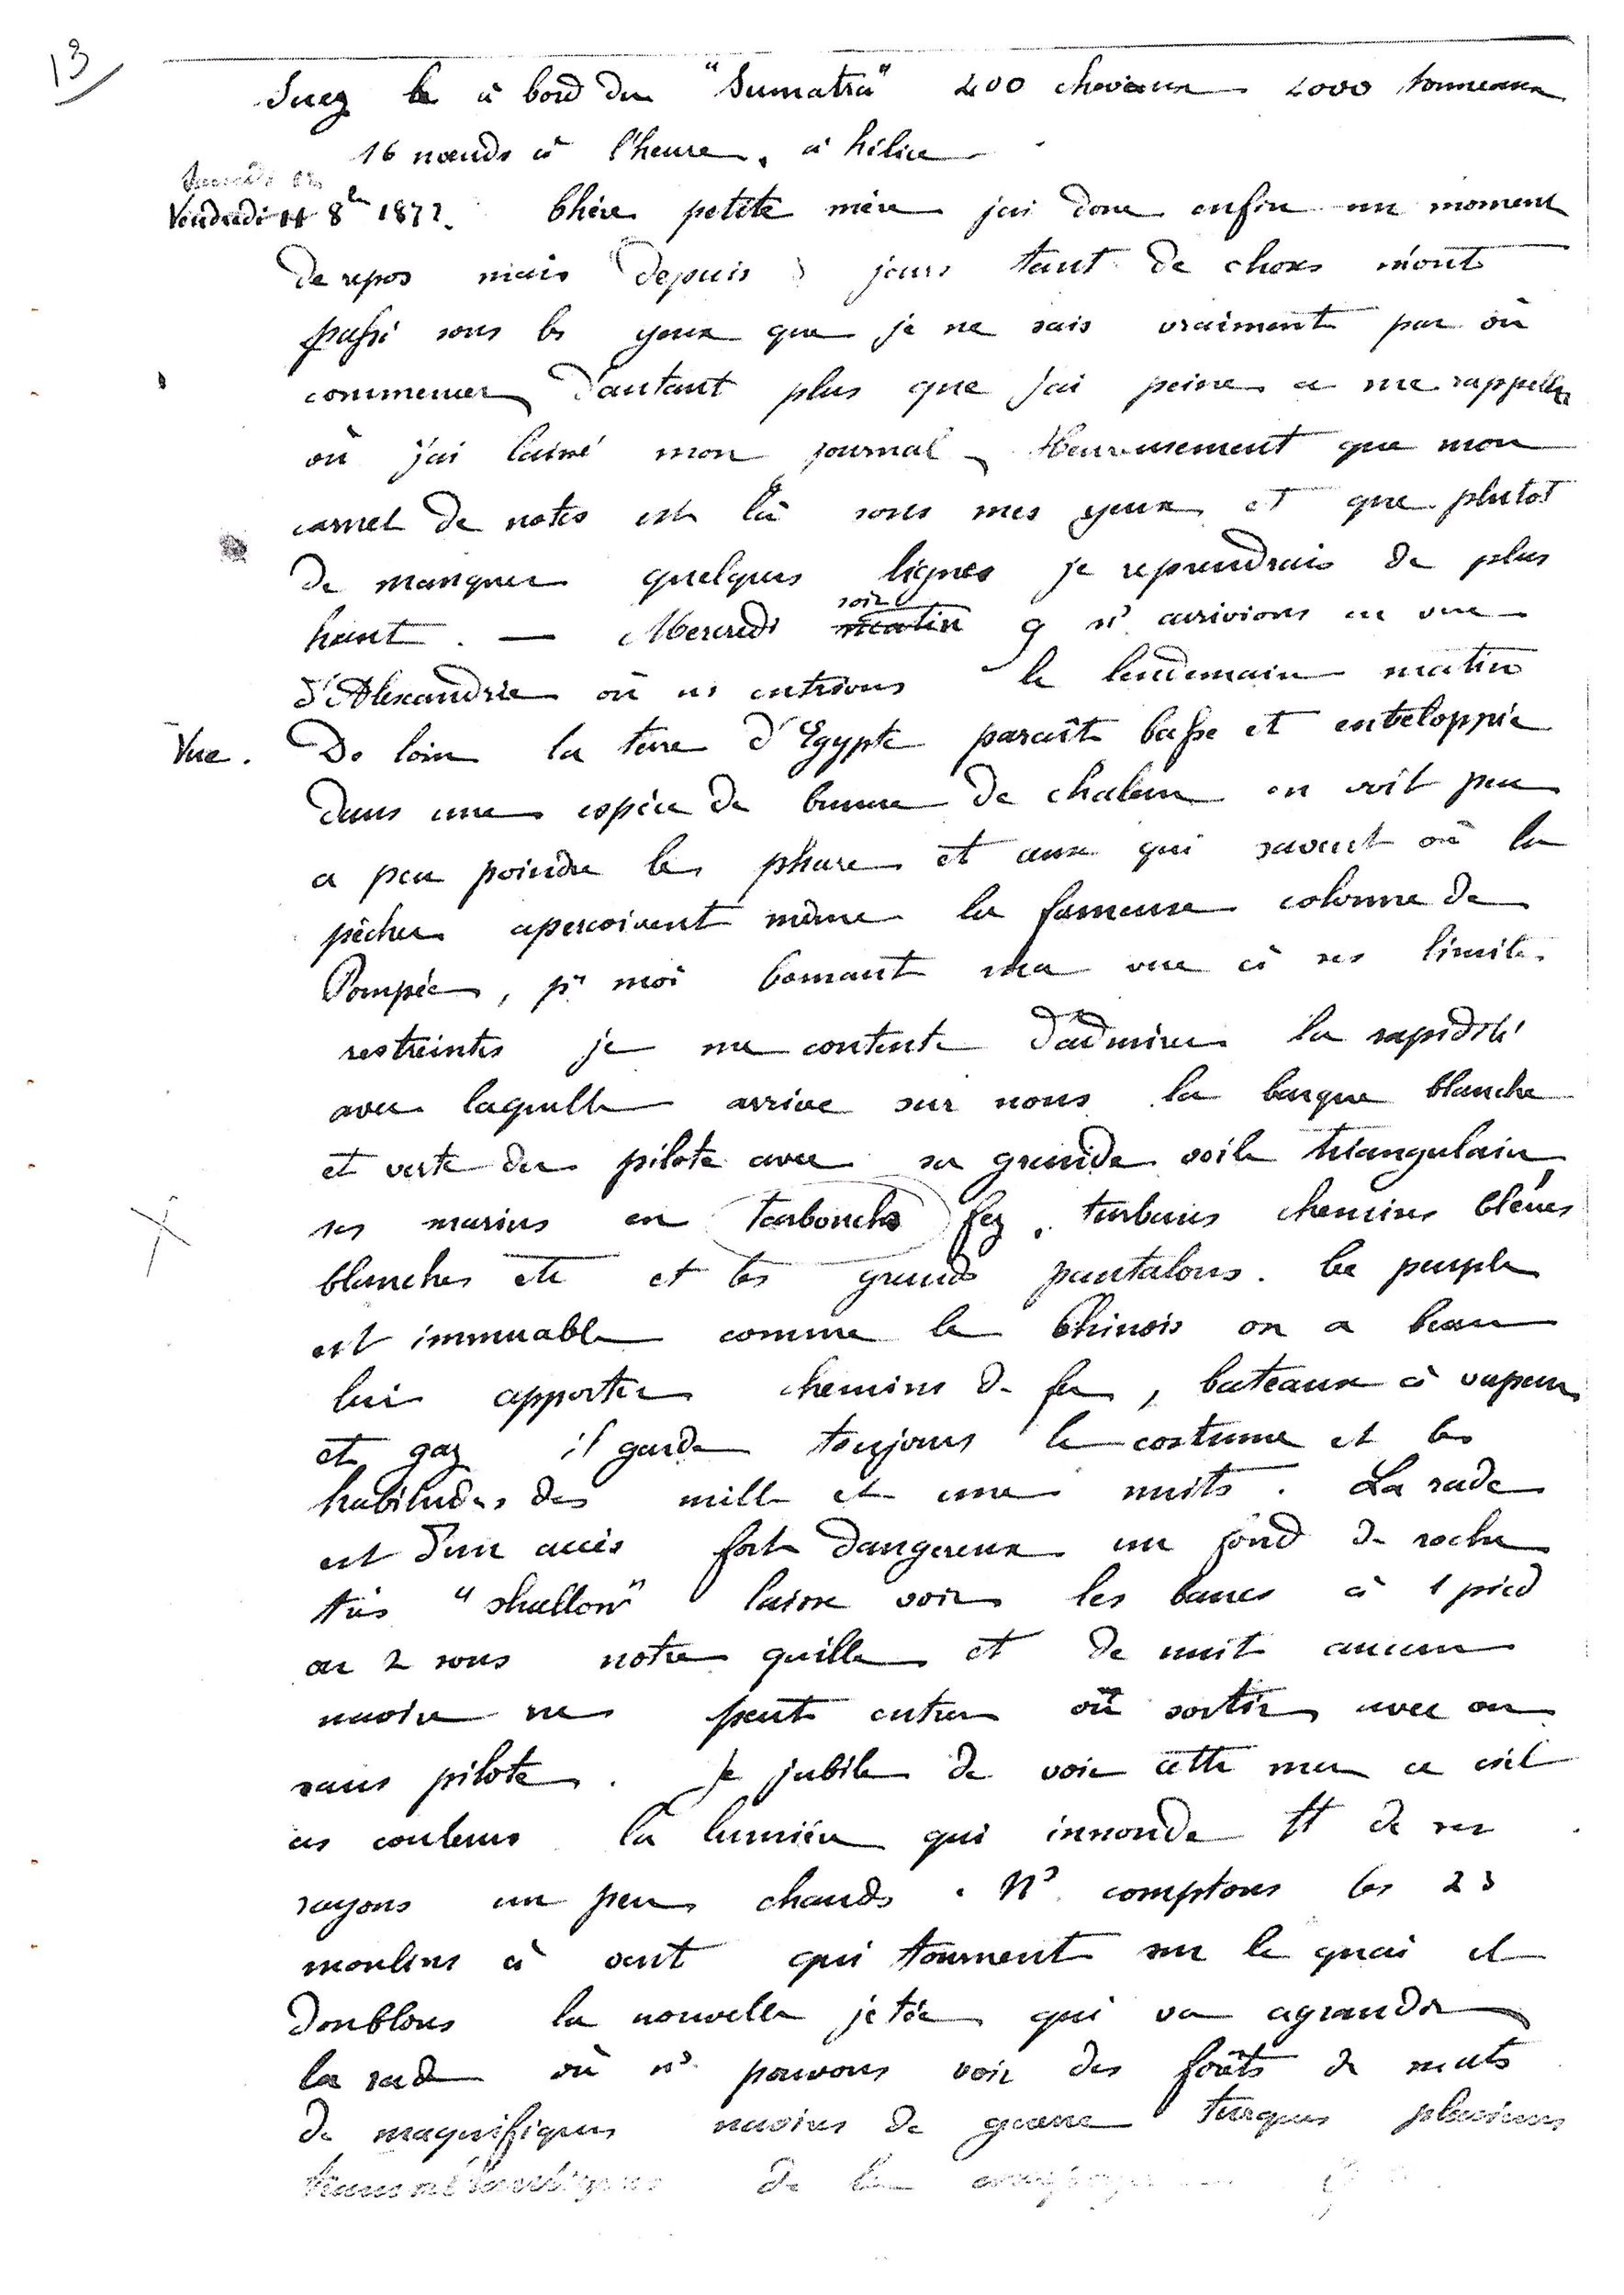 13
Suez le à bord du "Sumatra" 400 chevaux 2000 tonneaux
16 nœuds à l'heure, à hélice
Vendredi 11 8bre 1872. Chère petite mère j'ai donc enfin un moment
de repos mais depuis 3 jours tant de choses m'ont
passé sous les yeux que je ne sais vraiment par où
commencer d'autant plus que j'ai peine a me rappeller
où j'ai laissé mon journal, Heureusement que mon
carnet de notes est là sous mes yeux et que plutot
de manquer quelques lignes je reprendrais de plus
haut. — Mercredi matin soir 9 ns arrivions en vue
d'Alexandrie où ns entrions le lendemain matin
Vue. De loin la terre d'Egypte paraît basse et enveloppée
dans une espèce de brume de chaleur on voit peu
a peu poindre le phare et ceux qui savent où la
pêcher apercoivent même la fameuse colonne de
Pompée, pr moi bornant ma vue à ses limites
restreintes je me contente d'admirer la rapidité
avec laquelle arrive sur nous la barque blanche
et verte du pilote avec sa grande voile triangulaire,
ses marins en tarbouchs fez, turbans chemises bleues
blanches etc et les grands pantalons. Ce peuple
est immuable comme le Chinois on a beau
lui apporter chemins de fer, bateaux à vapeur
et gaz il garde toujours le costume et les
habitudes des mille et une nuits. La rade
est d'un accès fort dangereux un fond de roche
très "shallow" laisse voir les bancs à 1 pied
ou 2 sous notre quille et de nuit aucun
navire ne peut entrer ou sortir avec ou
sans pilote. Je jubile de voir cette mer ce ciel
ces couleurs la lumière qui innonde tt de ses
rayons un peu chauds. Ns comptons les 23
moulins à vent qui tournent sur le quai et
doublons la nouvelle jetée qui va agrandir
la rade où ns pouvons voir des forêts de mats
de magnifiques navires de guerre turques plusieurs
de la